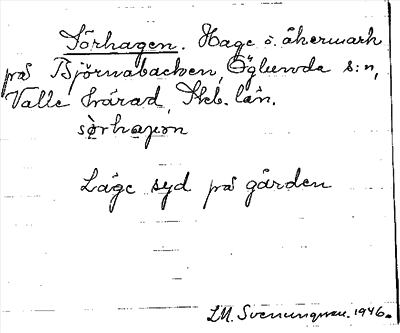 Sörhagen. Hage o. åkermark
på Björnabacken, Öglunda s:n,
Valle härad, Skb. län.
sö̀rhaɡən
Läge syd på gården
L.M. Svenungsson. 1946.